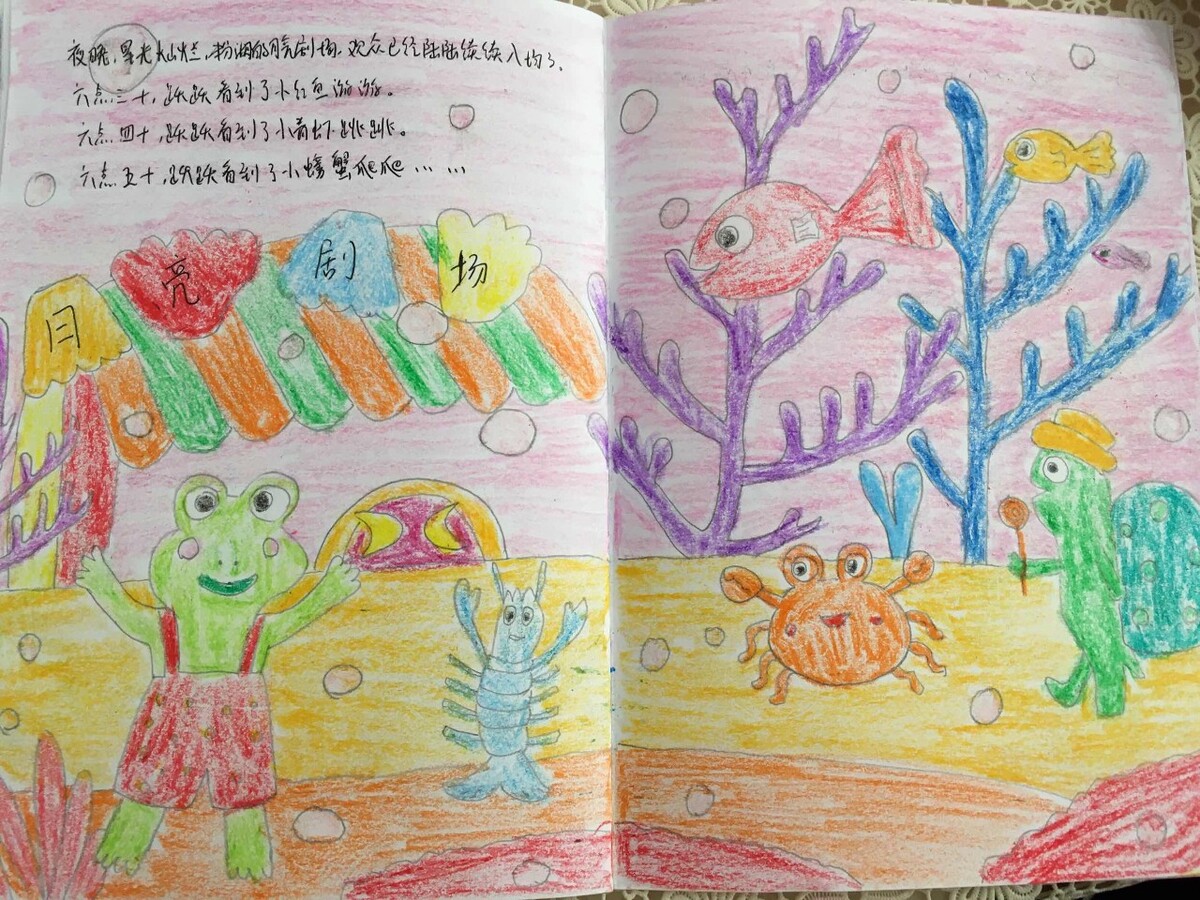 夜晚,星光灿烂,粉润的月亮剧场,观众已经陆陆续续入场了。
六点三十,跃跃看到了小红鱼游游。
六点四十,跃跃看到了小青虾跳跳。
六点五十,跃跃看到了小螃蟹爬爬……
月亮剧场